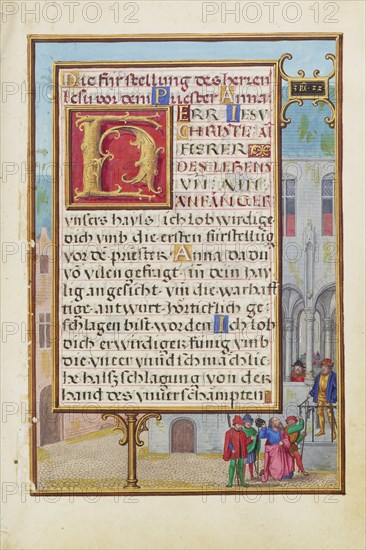 Die fürstellung des herren
Iesu vor dem Priester Anna
HERR IESV
CHRISTE AI
FIERER
DES LEBENS
VNT AIN
ANFANGER
vnsers hayls ich lob wirdige
dich vmb die ersten fürstellūg
vor dē priester Anna da du
von vilen gefragt, in dein hay
lig angesicht vm die warhaff
tige antwurt hörticklich ge
schlagen bist worden Ich lob
dich erwirdige künig vmb
die vnter vnnd schmächlic
he halß schlagung von der
hand des vnuerschampten
PHOTO 12